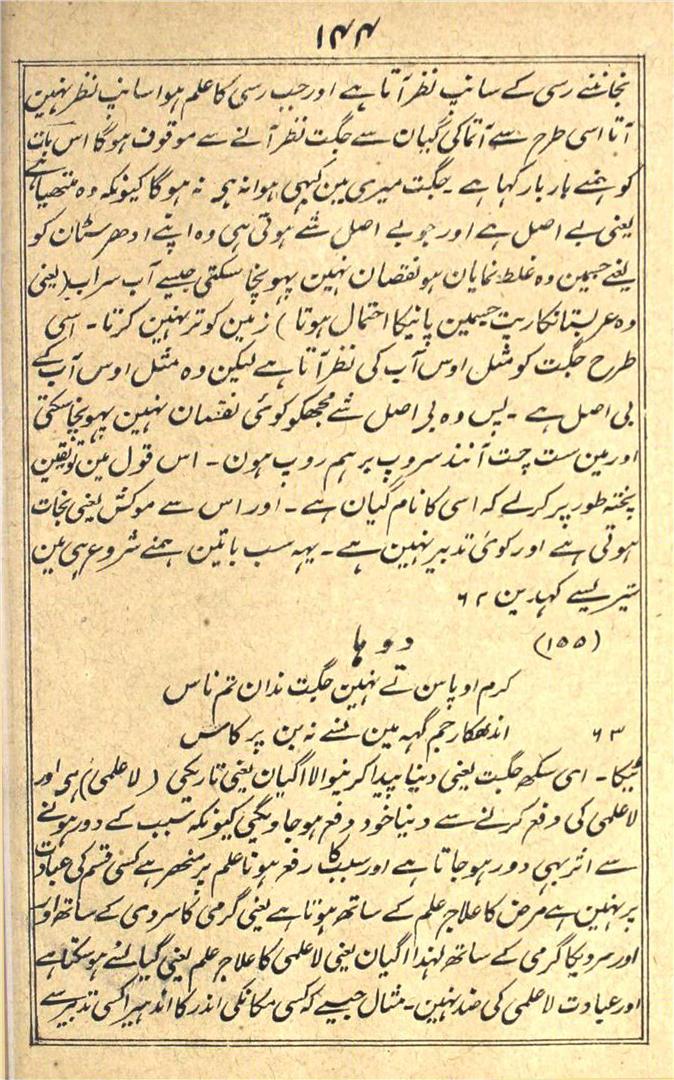 ۱۴۴
نجاننے رسی کے سانپ نظر آتا ہے اور جب رسی کا علم ہوا سانپ نظر نہین
آتا اسی طرح سے آتما کی گیان سے جگت نظر آنے سے موقوف ہوگا اس بات
کو ہمنے بار بار کہا ہے ۔ جگت میری مین کبہی ہوا نہ ہی نہ ہوگا کیونکہ وہ متھیا ہے
یعنی بے اصل ہے اور جو بے اصل شے ہوتی ہی وہ اپنے ادھرسٹان کو
یعنے جسمین وہ غلط نمایان ہو نقصان نہین پہونچا سکتی جیسے آب سراب (یعنی
وہ عربستانکا ریت جسمین پانیکا احتمال ہوتا) زمین کو تر نہین کرتا ۔ اسی
طرح جگت کو مثل اوس آب کی نظر آتا ہے لیکن وہ مثل اوس آب کے
بی اصل ہے ۔ پس وہ بی اصل شے مجھکو کوئی نقصان نہین پہونچا سکتی
اور مین ست چت آنند سروپ برہم روپ ہون ۔ اس قول مین تو یقین
پختہ طور پر کرلے کہ اسی کا نام گیان ہے ۔ اور اس سے موکش یعنی نجات
ہوتی ہے اور کوئی تدبیر نہین ہے ۔ یہہ سب باتین ہمنے شروع ہی مین
تیریسے کہدین ۶۲
(۱۵۵) دوہا
کرم اوپاسن تے نہین جگت ندان تم ناس
۶۳ اندھکار جم گہہ مین نسے نہ بن پرکاس
ٹیکا ۔ ای سکھ جگت یعنی دنیا پیدا کرنیوالا اگیان یعنی تاریکی (لاعلمی) ہی اور
لاعلمی کی دفع کرنے سے دنیا خود دفع ہو جاویگی کیونکہ سبب کے دور ہونے
سے اثر بہی دور ہو جاتا ہے اور سبب کا رفع ہونا علم پر منحصر ہے کسی قسم کی عبادت
پر نہین ہے مرض کا علاج علم کے ساتھ ہوتا ہے یعنی گرمی کا سردی کے ساتھ اور
اور سردیکا گرمی کے ساتھ لہندا اگیان یعنی لاعلمی کا علاج علم یعنی گیا نسے ہو سکتا ہے
اور عبادت لاعلمی کی ضد نہین ۔ مثال جیسے کہ کسی مکانکی اندر کا اندہیرا کسی تدبیر سے